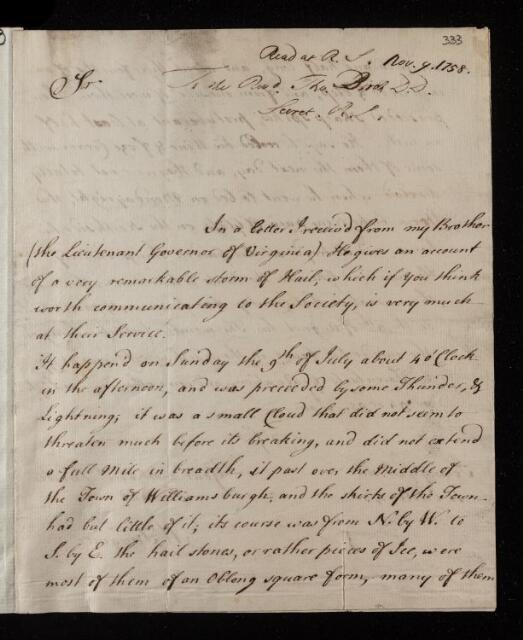 333
Read at R. S. Nov. 9. 1758.
Sr. To the Revd. Tho. Birch D.D.
Secret. R. S.
In a Letter I receiv'd from my Brother
(the Lieutenant Governor of Virginia) He gives an account
of a very remarkable storm of Hail, which if you think
worth communicating to the Society, is very much
at their Service.
It happend on Sunday the 9th of July about 4 o'Clock
in the afternoon, and was preceeded by some Thunder, &
Lightning; it was a small Cloud that did not seem to
threaten much before its breaking, and did not extend
a full Mile in breadth, it past over the Middle of
the Town of Williamsburgh, and the skirts of the Town
had but little of it; its course was from N. by W. to
S. by E. the hail stones, or rather pieces of Ice, were
most of them of an Oblong square form, many of them